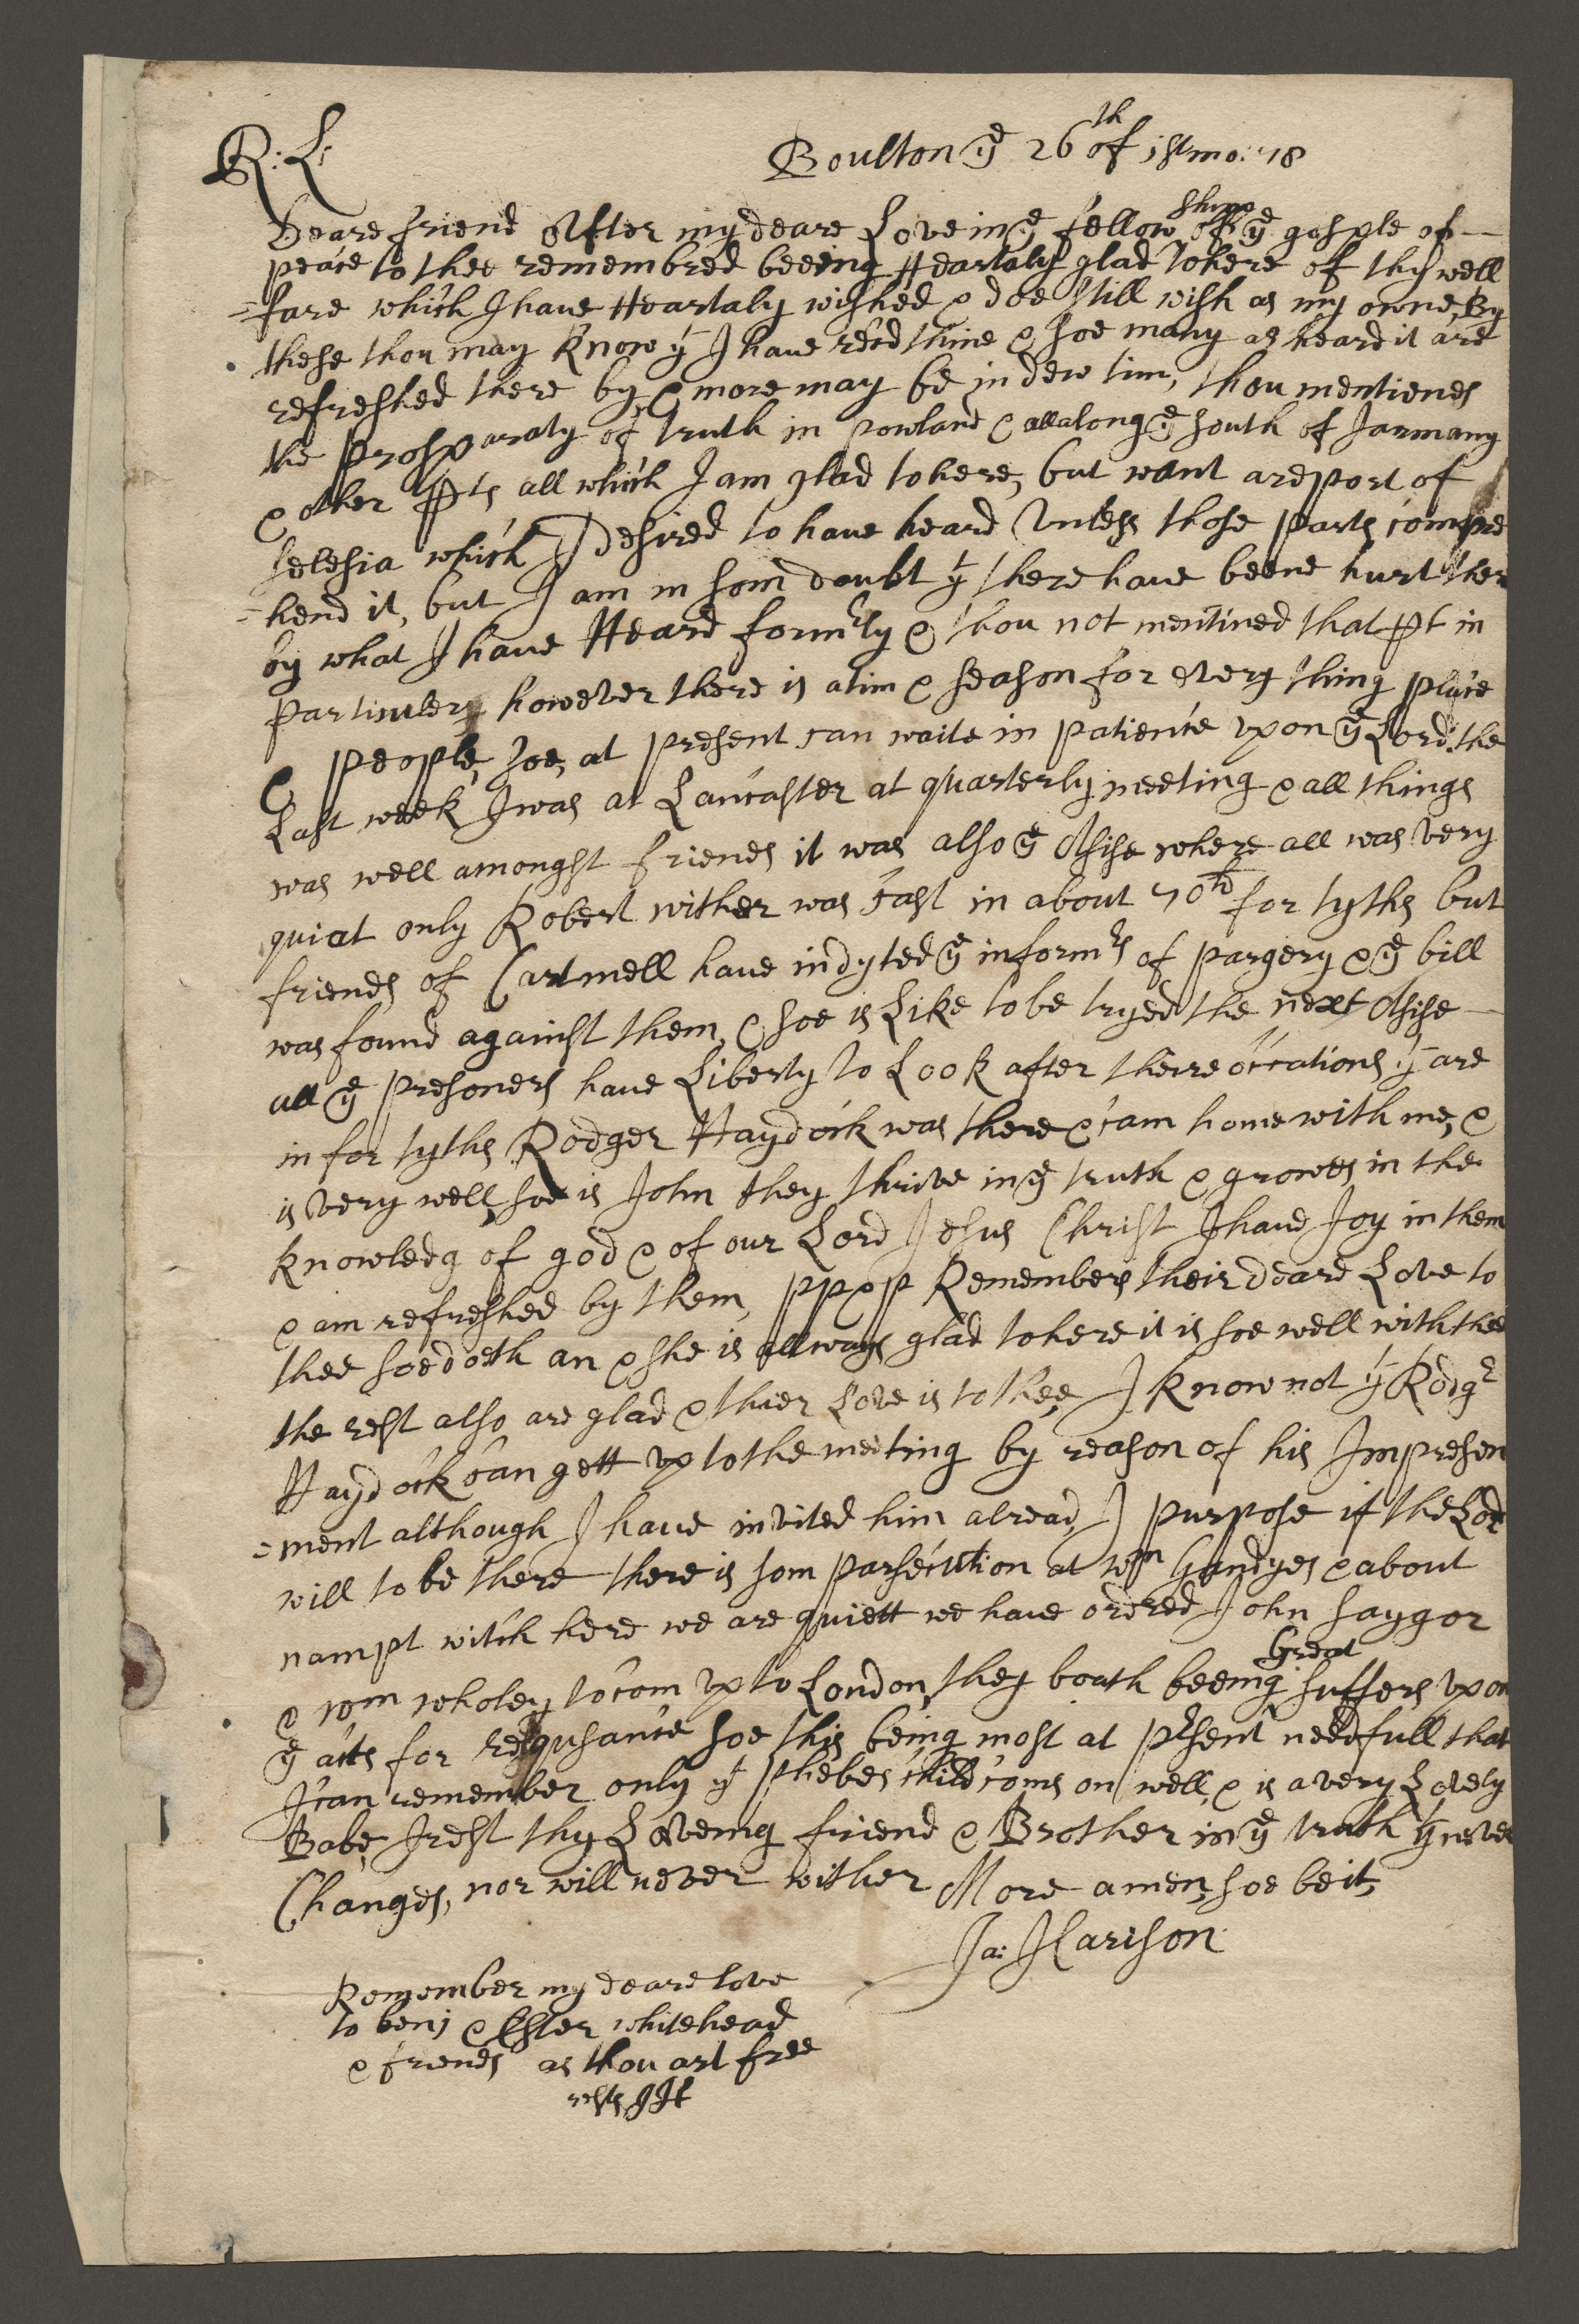 R: L:
Boulton yᵉ 26ᵗʰ of 1st mo: 78
Deare friend After my deare Love in yᵉ fellowshipp of yᵉ gosple of —
peace to thee remembred beeing Heartaly glad to here of thy well
=fare which I have Heartaly wished & doe still wish as my owne, By
these thou may know yᵗ I have recd thine & soe many as heard it are
refreshed there by, & more may be in dew tim, thou mentiones
the prosparaty of truth in powland & all along yᵉ south of Jarmany
& other pts all which I am glad to here, but want a report of
selesia which I desired to have heard Unless those parts compre
=hend it, but I am in som doubt yᵗ there have beene hurt ther
by what I have Heard formʳly & thou not mentined that pt in
particuler, however there is a tim & season for every thing place
& people, soe, at present can waite in patience upon yᵉ Lord: the
Last week I was at Lancaster at quarterly meeting & all things
was well amongst friends it was also yᵉ Asise where all was very
quiat only Robert wither was cast in about 70ˡᵈ for tyths but
friends of Cartmell have indyted yᵉ informʳs of pargery & yᵉ bill
was found against them, & soe is Like to be tryed the next Asise —
all yᵉ presoners have Liberty to Look after theire occations yᵗ are
in for tyths Rodger Haydock was there & cam home with me, &
is very well, soe is John they thrive in yᵉ truth & growes in the
knowledg of god & of our Lord Jesus Christ I have Joy in them
& am refreshed by them, PP & P Remembers their deare Love to
thee soe doeth an & she is allways glad to here it is soe well with thee
the rest also are glad & thier Love is to thee, I know not yᵗ Rodgʳ
Haydock can gett up to the meeting by reason of his Impresen
=ment although I have invited him alread, I purpose if the Lord
will to be there there is som parsecution at Wᵐ Gandyes & about
nampt witch here we are quiett we have ordred John Saygor
& wm wholey to com up to London, they boath beeing Great suffers upon
yᵉ acts for requsance soe this being most at pʳsent needfull that
I can remember only yᵗ phebes child coms on well, & is a very Lovely
Babe, I rest thy Loveing friend & Brother in yᵉ truth yᵗ never
Changes, nor will never wither More amen, soe be it,
Ja: Harison
Remember my deare love
to benj & Ester whitehead
& friends as thou art free
rests JH